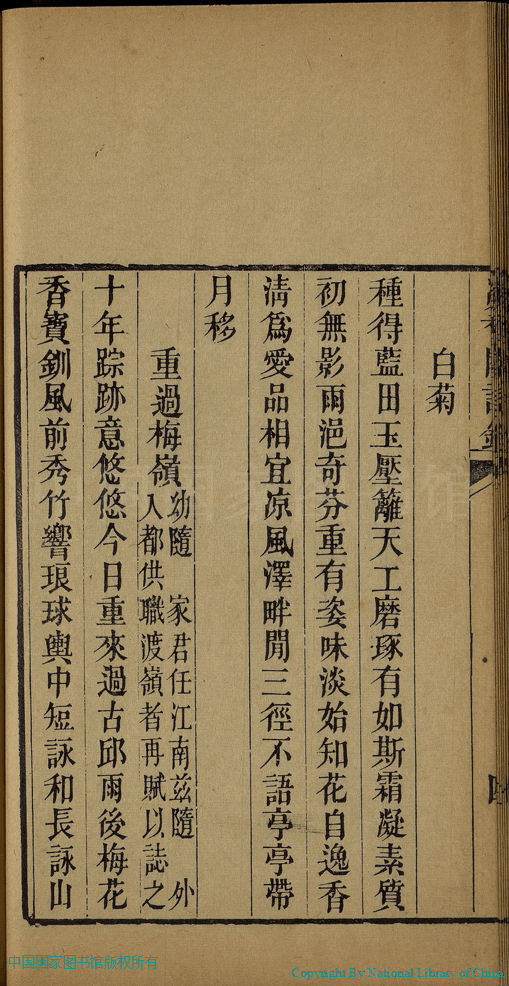 白菊
種得藍田玉壓籬天工磨琢有如斯霜凝素質
初無影雨浥奇芬重有姿味淡始知花自逸香
淸爲愛品相宜凉風澤畔閒三徑不語亭亭帶
月移
重過梅嶺
幼隨　家君任江南兹隨　外
入都供職渡嶺者再賦以誌之
十年踪跡意悠悠今日重來過古邱雨後梅花
香寶釧風前秀竹響琅球輿中短詠和長詠山
中国国家图书馆版权所有
Copyright By National Library of China